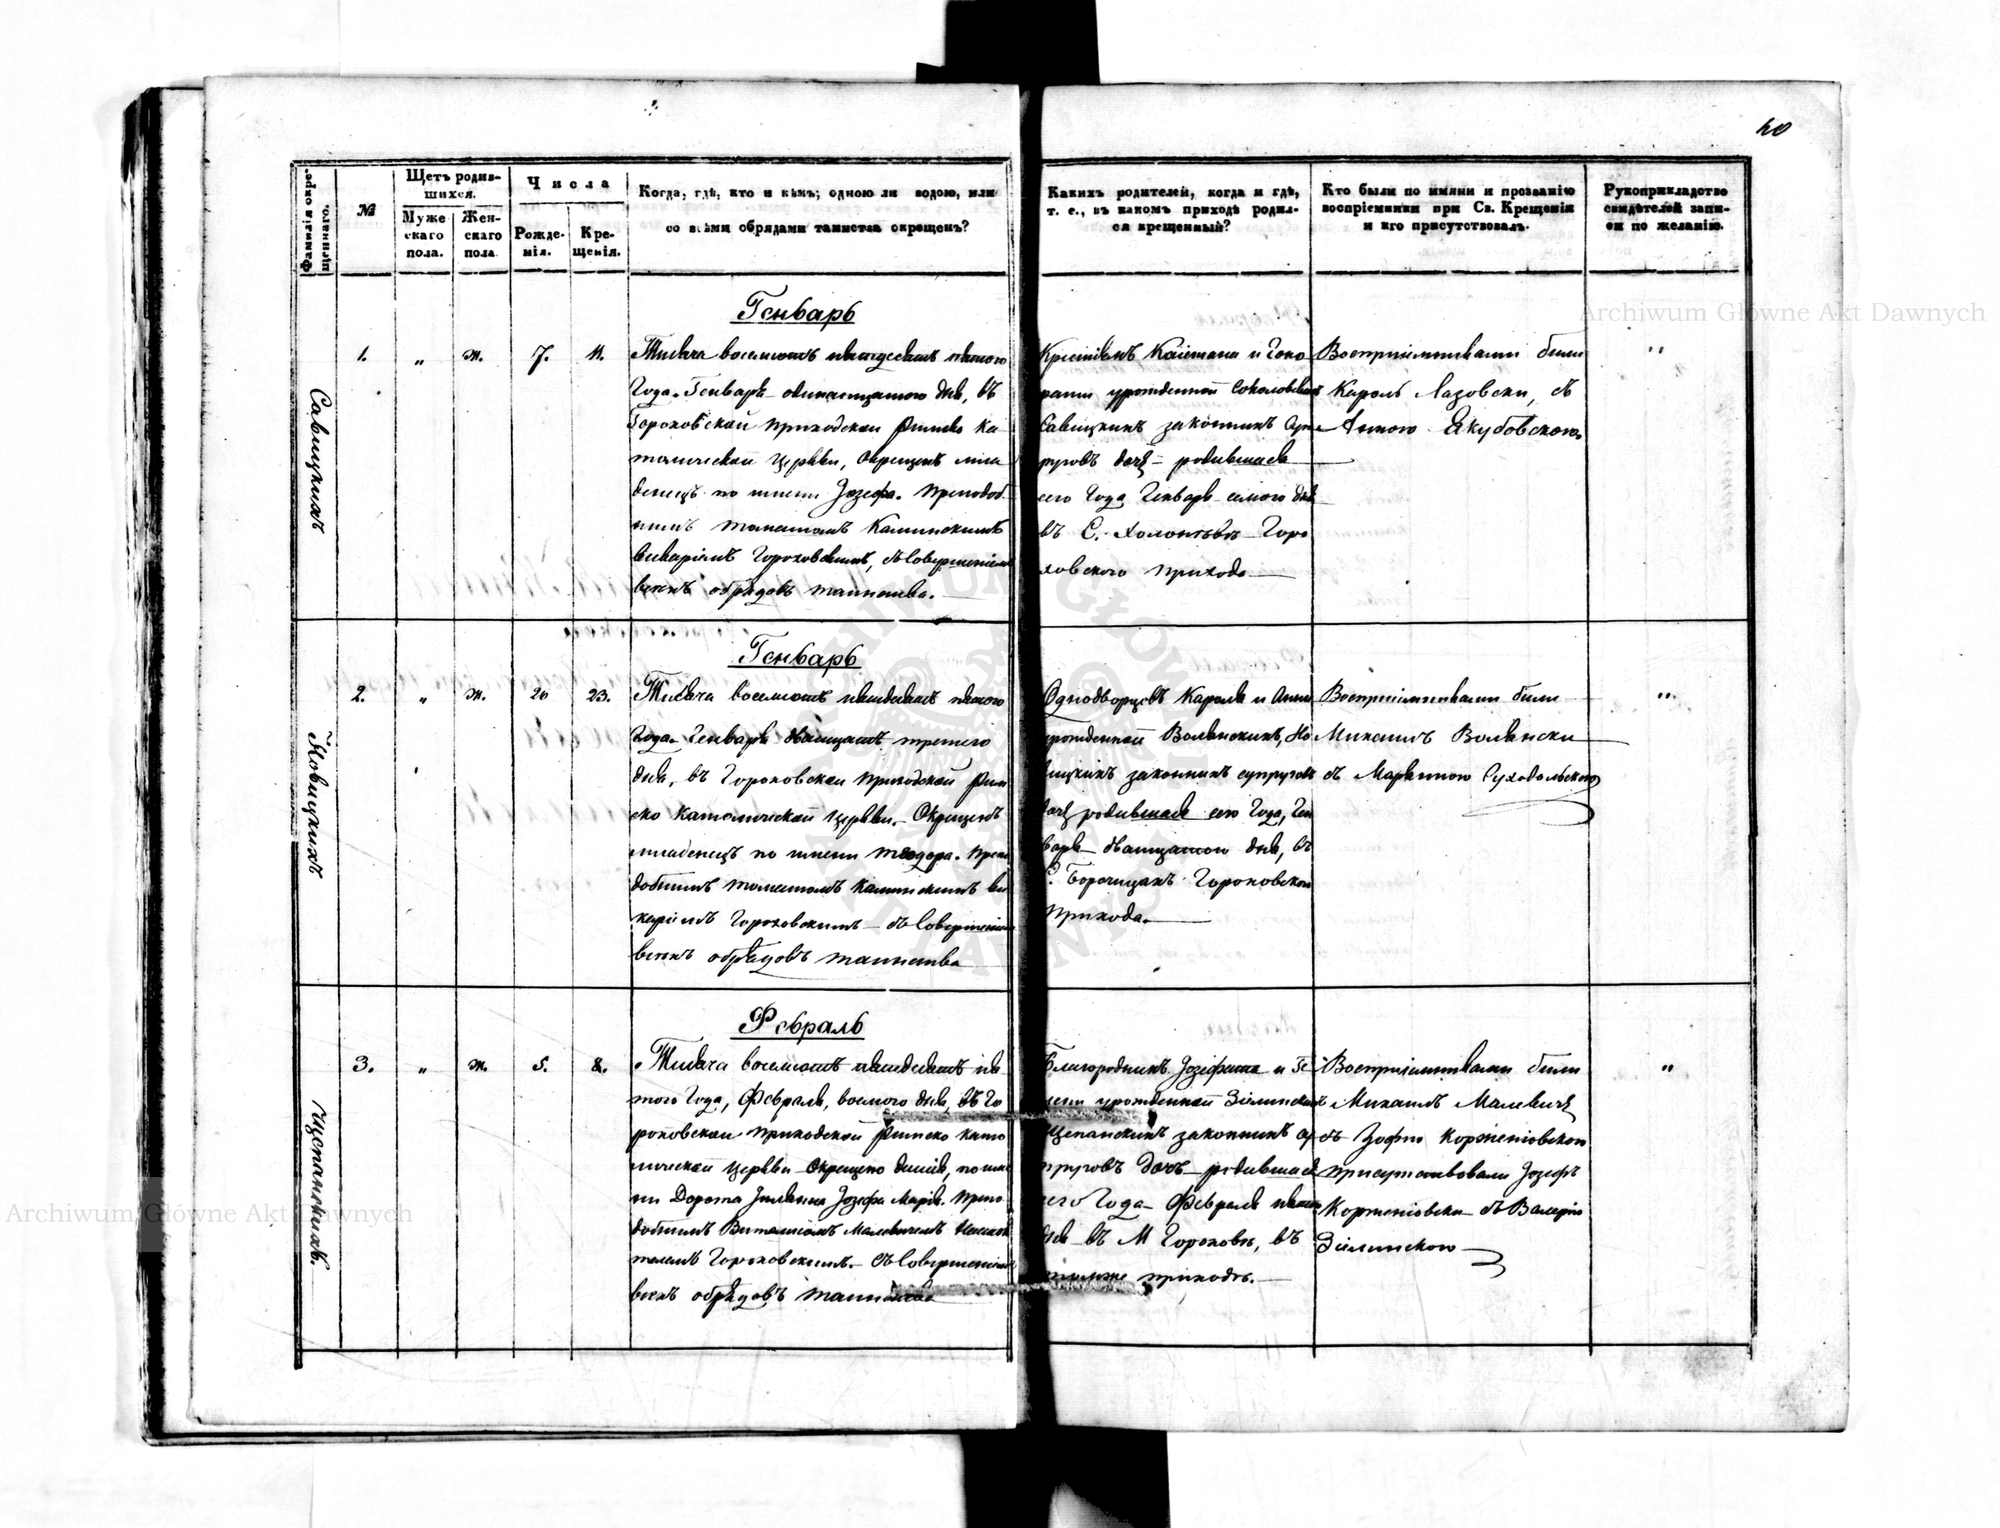 40
Фамилія окре-
щеннаго.
№
Щетъ родив-
шихся.
Муже
скаго
пола.
Жен-
скаго
пола
Числа
Рожде-
нія.
Кре-
щенія.
Когда, гдѣ, кто и кѣмъ; одною ли водою, или
со всѣми обрядами таинства окрещенъ?
Какихъ родителей, когда и гдѣ,
т. е., въ какомъ приходѣ родил-
ся крещенный?
Кто были по имяни и прозванію
воспріемники при Св. Крещеніи
и кто присутствовалъ.
Рукоприкладство
свидѣтелей запи-
си по желанію.
Савицкихъ
1. " ж. 7. 11.
Генварь
Тисяча восемсотъ пятдесятъ пятого
Года. Генваря одинатцатого дня, въ
Гороховской приходской римско ка
толической Церкви, Окрещенъ мла
денецъ по имени Юзефа. Преподоб
нимъ Томашомъ Каминскимъ
викаріемъ Гороховскимъ, съ Совершеніем
всехъ обрядовъ таинства.
Крестянъ Каіетана и
урожденной Соколовскихъ
Савицкихъ законнихъ Суп
руговъ дочь родившаяся
сего Года Генваря семого дня
въ С. Холоневѣ Горо
ховского прихода
Воспріемниками были
Кароль Лазовски, съ
Анною Якубовскою.
"
Новицкихъ
2. " ж. 20 23.
Генварь
Тисяча восемсотъ пятдесятъ пятого
Года. Генваря дватцатъ третего
дня, въ Гороховской приходской рим
ско католической Церкви. Окрещенъ
младенецъ по имени Теодора. Препо
добнимъ Томашомъ Каминскимъ ви
каріемъ Гороховскимъ съ Совершеніем
всехъ обрядовъ таинства
Однодворцовъ Кароля и Анни
урожденной Волянскихъ, Но
вицкихъ законнихъ супруговъ
дочь родившаяся сего Года, Ген
варя дватцатого дня, въ
С. Борочицахъ Гороховской
прихода.
Воспріемниками были
Михаилъ Волянски
съ Марянною Суходольскою
"
Щепанскихъ.
3. " ж. 5. 8.
Февраль
Тисяча восемсотъ пятдесятъ пя
того Года, Февраля, восмого дня, въ Го
роховской приходской римско като
лической Церкви Окрещено дитя, по име
ни Дорота Юлянна Юзефа Марія. Препо
добнимъ Виталисомъ Малевичемъ Настоя
телемъ Гороховскимъ. съ Совершеніем
всехъ обрядовъ таинства
Благороднихъ Юзефата и Ге
лени урожденной Зѣлинскихъ
Щепанскихъ законнихъ су
пруговъ дочь родившаяся
сего Года Февраля пятого
дня въ М Гороховѣ, въ
томже приходѣ.
Воспріемниками были
Михаилъ Малевичъ
съ Зофію Корженіовскою
присутствовали Юзефъ
Корженіовски съ Валерію
Зѣлинскою
"
Archiwum Główne Akt Dawnych
Archiwum Główne Akt Dawnych